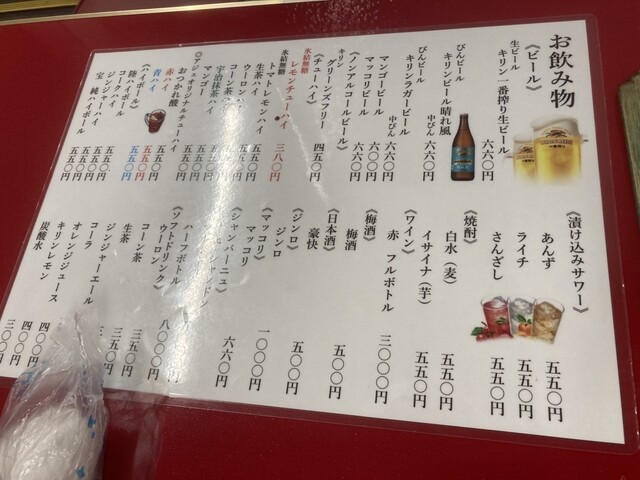 お飲み物
《ビール》
生ビール
キリン一番搾り生ビール 六六〇円
びんビール
キリンビール晴れ風 中びん 六六〇円
びんビール
キリンラガービール 中びん 六六〇円
マンゴービール 六〇〇円
マッコリビール 六〇〇円
《ノンアルコールビール》
キリン
グリーンズフリー 四五〇円
《チューハイ》
氷結無糖
レモンチューハイ 三八〇円
氷結無糖
トマトレモンハイ
生茶ハイ 五五〇円
ウーロンハイ 五五〇円
コーン茶ハイ 五五〇円
宇治抹茶ハイ 五五〇円
マンゴー 五五〇円
◎アジュオリジナルチューハイ
おつかれ酸 五五〇円
赤ハイ 五五〇円
青ハイ 五五〇円
《ハイボール》
陸ハイボール 五五〇円
コークハイ 五五〇円
ジンジャーハイ 五五〇円
宝 純ハイボール
《漬け込みサワー》
あんず 五五〇円
ライチ 五五〇円
さんざし 五五〇円
《焼酎》
白水（麦） 五五〇円
イサイナ（芋） 五五〇円
《ワイン》
赤 フルボトル 三〇〇〇円
《梅酒》
梅酒 五〇〇円
《日本酒》
豪快 五〇〇円
《ジンロ》
ジンロ 一〇〇〇円
《マッコリ》
マッコリ 六六〇円
《シャンパーニュ》
ハーフボトル 八〇〇〇円
《ソフトドリンク》
ウーロン茶 三五〇円
コーン茶 三五〇円
生茶 三五〇円
ジンジャーエール
コーラ
オレンジジュース 四〇〇円
キリンレモン 四〇〇円
炭酸水 三〇〇円